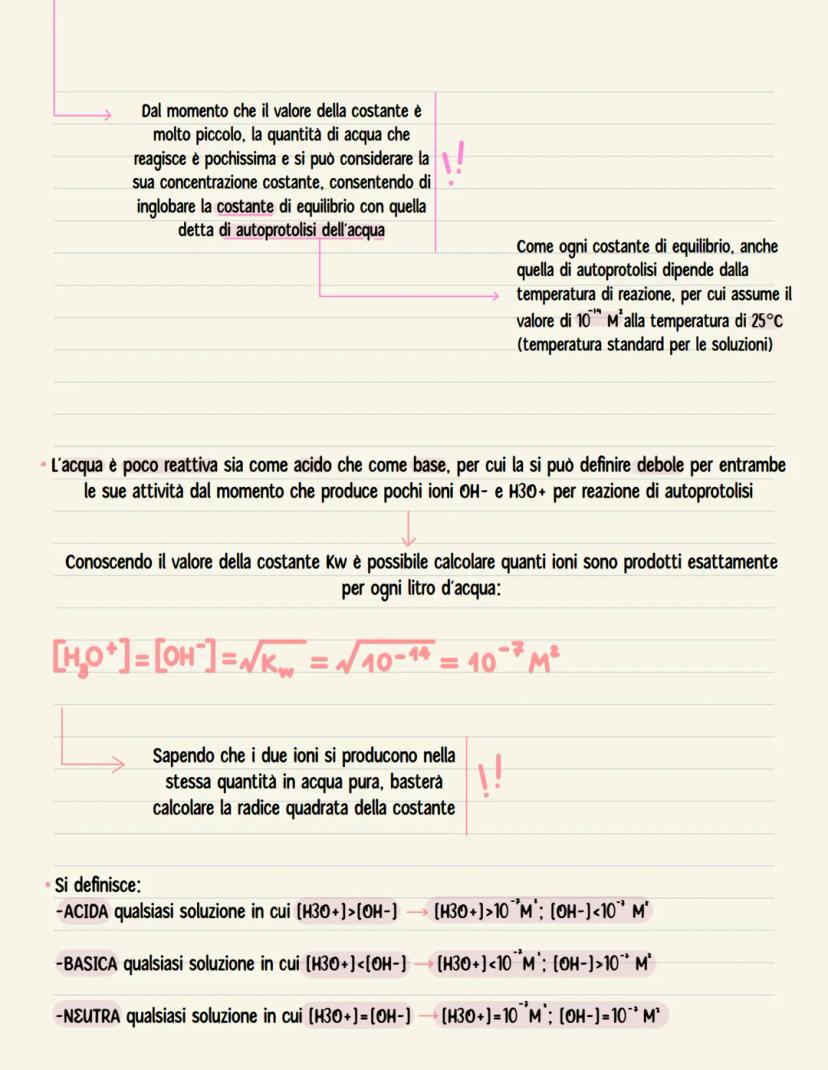 Dal momento che il valore della costante è
molto piccolo, la quantità di acqua che
reagisce è pochissima e si può considerare la
sua concentrazione costante, consentendo di
inglobare la costante di equilibrio con quella
detta di autoprotolisi dell'acqua
!!
Come ogni costante di equilibrio, anche
quella di autoprotolisi dipende dalla
temperatura di reazione, per cui assume il
valore di 10⁻¹⁴ M² alla temperatura di 25°C
(temperatura standard per le soluzioni)
• L'acqua è poco reattiva sia come acido che come base, per cui la si può definire debole per entrambe
le sue attività dal momento che produce pochi ioni OH- e H3O+ per reazione di autoprotolisi
Conoscendo il valore della costante Kw è possibile calcolare quanti ioni sono prodotti esattamente
per ogni litro d'acqua:
[H₃O⁺]=[OH⁻]=√Kw = √10⁻¹⁴ = 10⁻⁷ M²
Sapendo che i due ioni si producono nella
stessa quantità in acqua pura, basterà
calcolare la radice quadrata della costante
!!
• Si definisce:
-ACIDA qualsiasi soluzione in cui [H3O+]>[OH-] → [H3O+]>10⁻⁷M²; [OH-]<10⁻⁷ M²
-BASICA qualsiasi soluzione in cui [H3O+]<[OH-] → [H3O+]<10⁻⁷M²; [OH-]>10⁻⁷ M²
-NEUTRA qualsiasi soluzione in cui [H3O+]=[OH-] → [H3O+]=10⁻⁷M²; [OH-]=10⁻⁷ M²